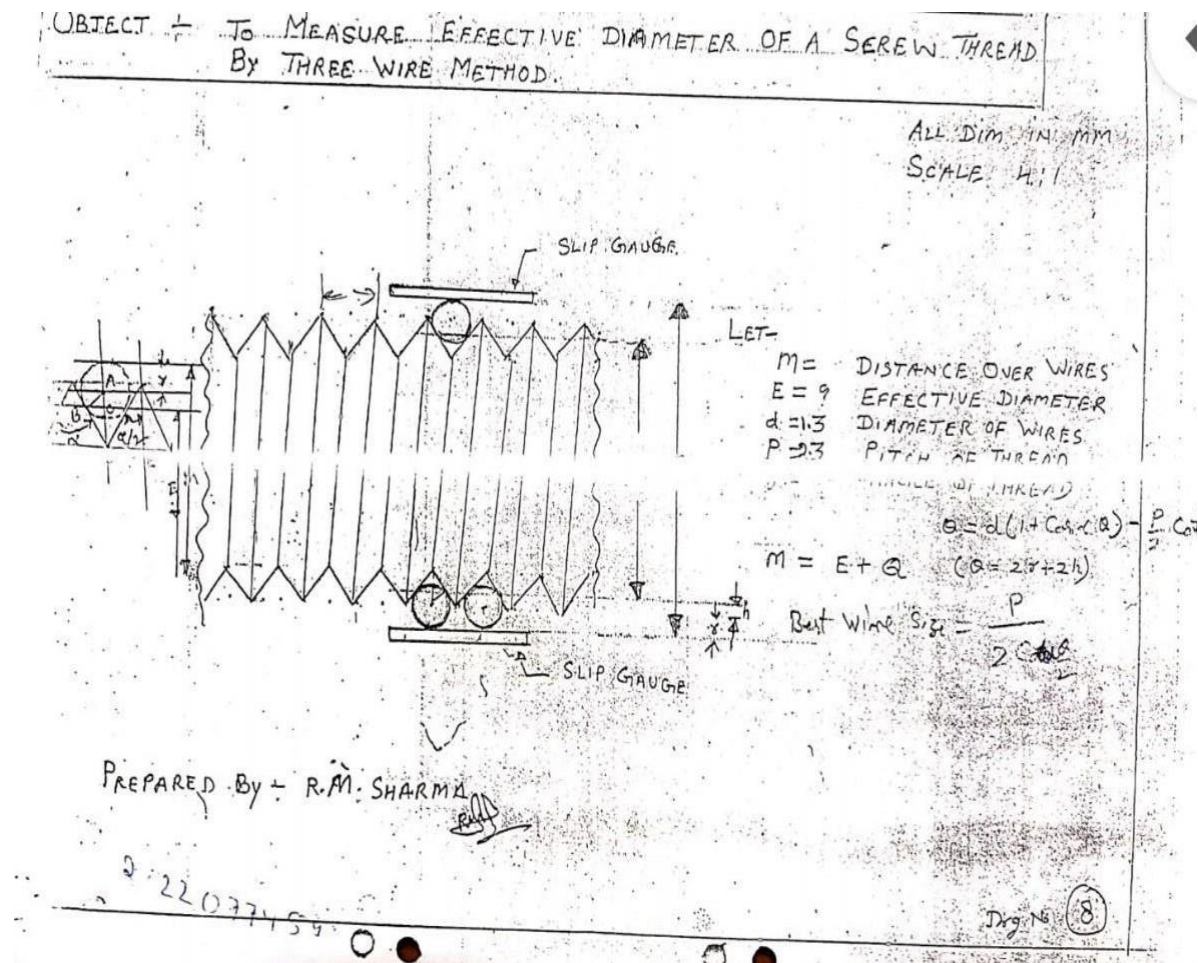 OBJECT :- TO MEASURE EFFECTIVE DIAMETER OF A SEREW THREAD
By THREE WIRE METHOD.
ALL DIM IN MM
SCALE 4:1
SLIP GAUGE.
LET-
M = DISTANCE OVER WIRES
E = 9 EFFECTIVE DIAMETER
d = 1.3 DIAMETER OF WIRES
P = 2.3 PITCH OF THREAD
OF THREAD
A
B
α
α/2
r
E
Q = d(1+
M = E + Q (Q = 2r+2h)
h
r
Best Wire Size = P
2
SLIP GAUGE
PREPARED By :- R.M. SHARMA
Drg No 8